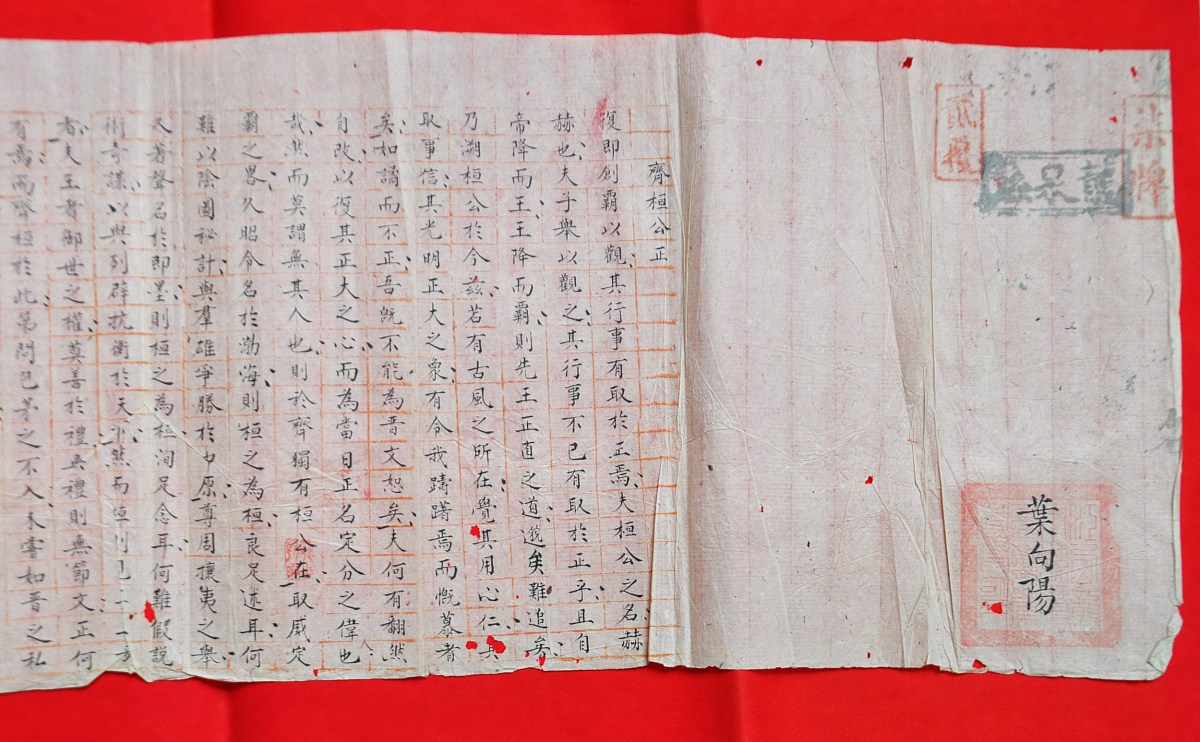 葉向陽
齊桓公正
復即創霸以觀其行事有取於正焉夫桓公之名赫
赫也夫子舉以觀之其行事不已有取於正乎且自
帝降而王王降而霸則先王正直之道邈矣難追矣
乃溯桓公於今茲若有古風之所在覺其用心仁其
取事信其光明正大之象有令我躊躇焉而慨慕者
矣如譎而不正吾既不能為晋文恕矣夫何有翻然
自改以復其正大之心而為當日正名定分之偉也
哉然而莫謂無其人也則於齊獨有桓公在取威定
霸之畧久昭令名於渤海則桓之為桓良足述耳何
難以陰圖秘計與羣雄爭勝於中原尊周攘夷之舉
久著聲名於即墨則桓之為桓洵足念耳何難假說
術奇謀以與列辟抗衡於天下然而桓則已
者夫王者御世之權莫善於禮無禮則無節文正何
有焉而齊桓於此第問包茅之不入未嘗如晋之私